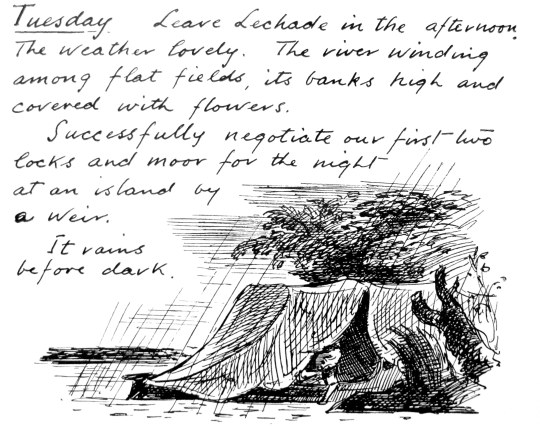 Tuesday. Leave Lechade in the afternoon.
The weather lovely. The river winding
among flat fields, its banks high and
covered with flowers.
Successfully negotiate our first two
locks and moor for the night
at an island by
a weir.
It rains
before dark.